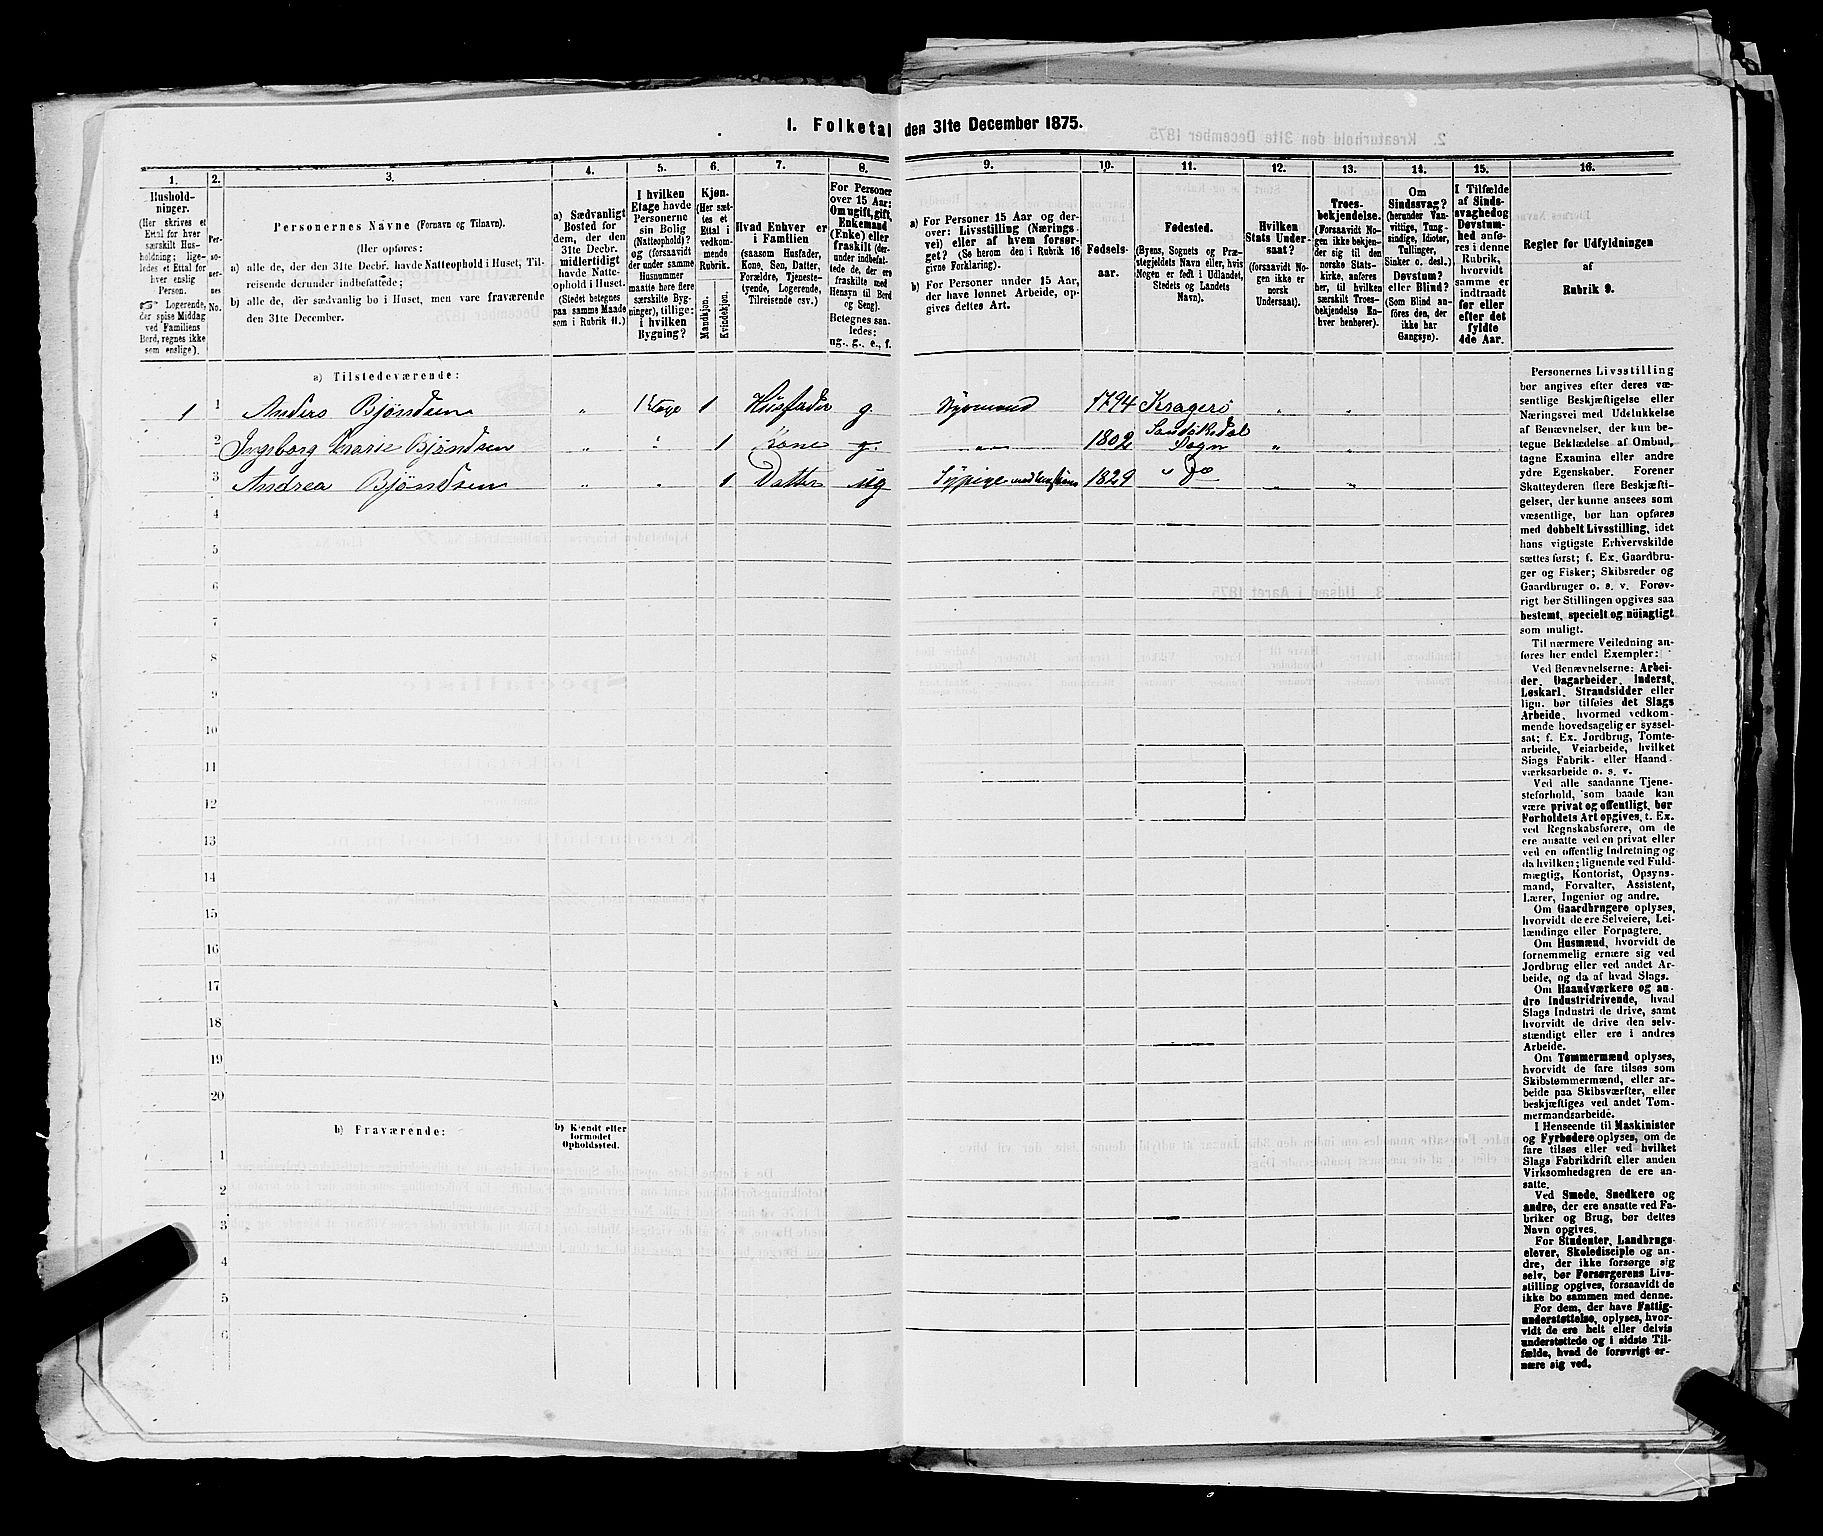 1. Folketal den 31te December 1875.
1.
2.
3.
4.
5.
6.
7.
8.
9.
10.
11.
12.
13.
14.
15.
16.
Hushold-
ninger.
(Her skrives et
Ettal for hver
særskilt Hus-
holdning; lige-
ledes et Ettal for
hver enslig
Person.
☞ Logerende,
der spise Middag
ved Familiens
Bord, regnes ikke
som enslige).
Per-
so-
ner-
nes
No.
Personernes Navne (Fornavn og Tilnavn).
(Her opføres:
a) alle de, der den 31te Decbr. havde Natteophold i Huset, Til-
reisende derunder indbefattede;
b) alle de, der sædvanlig bo i Huset, men vare fraværende
den 31te December.
a) Sædvanligt
Bosted for
dem, der den
31te Decbr.
midlertidigt
havde Natte-
ophold i Huset.
(Stedet betegnes
paa samme Maade
som i Rubrik 11.)
I hvilken
Etage havde
Personerne
sin Bolig
(Natteophold)?
og (forsaavidt
der under samme
Husnummer
maatte høre flere
særskilte Byg-
ninger), tillige:
i hvilken
Bygning?
Kjøn.
(Her sæt-
tes et
Ettal i
vedkom-
mende
Rubrik.
Mandkjøn.
Kvindekjøn.
Hvad Enhver er
i Familien
(saasom Husfader,
Kone, Søn, Datter,
Forældre, Tjeneste-
tyende, Logerende,
Tilreisende osv.)
For Personer
over 15 Aar:
Om ugift, gift,
Enkemand
(Enke) eller
fraskilt (der-
under indbefat-
tede de, der ere
fraskilte med
Hensyn til Bord
og Seng).
Betegnes saa-
ledes:
ug., g., e., f.
a) For Personer 15 Aar og der-
over: Livsstilling (Nærings-
vei) eller af hvem forsør-
get? (Se herom den i Rubrik 16
givne Forklaring).
b) For Personer under 15 Aar,
der have lønnet Arbeide, op-
gives dettes Art.
Fødsels-
aar.
Fødested.
(Byens, Sognets og Præ-
stegjeldets Navn eller, hvis
Nogen er født i Udlandet,
Stedets og Landets
Navn).
Hvilken
Stats Under-
saat?
(forsaavidt No-
gen ikke er
norsk
Undersaat).
Troes-
bekjendelse.
(Forsaavidt No-
gen ikke bekjen-
der sig til den
norske Stats-
kirke, anføres
her, til hvilken
særskilt Troes-
bekjendelse En-
hver henhører).
Om
Sindssvag?
(herunder Van-
vittige, Tung-
sindige, Idioter,
Tullinger,
Sinker o. desl.)
Døvstum?
eller Blind?
(Som Blind an-
føres den, der
ikke har
Gangsyn).
I Tilfælde
af Sinds-
svaghed og
Døvstum-
hed anfø-
res i denne
Rubrik,
hvorvidt
samme er
indtraadt
før eller
efter det
fyldte
4de Aar.
Regler for Udfyldningen
af
Rubrik 9.
a) Tilstedeværende:
1 1 Anders Bjöndsen " 1 Etage 1 Husfader g. 1794 Kragerö " "
2 Ingeborg Marie Bjöndsen " " 1 Kone g. " 1802 Sandökedal Sogn " "
3 Andrea Bjöndsen " " 1 Datter ug 1829 " Do " "
4
5
6
7
8
9
10
11
12
13
14
15
16
17
18
19
20
b) Fraværende:
b) Kjendt eller
formodet
Opholdssted.
1
2
3
4
5
6
Personernes Livsstilling
bør angives efter deres væ-
sentlige Beskjæftigelse eller
Næringsvei med Udelukkelse
af Benævnelser, der kun be-
tegne Beklædelse af Ombud,
tagne Examina eller andre
ydre Egenskaber. Forener
Skatteyderen flere Beskjæfti-
gelser, der kunne ansees som
væsentlige, bør han opføres
med dobbelt Livsstilling, idet
hans vigtigste Erhvervskilde
sættes først; f. Ex. Gaardbru-
ger og Fisker; Skibsreder og
Gaardbruger o. s. v. Forøv-
rigt bør Stillingen opgives saa
bestemt, specielt og nöiagtigt
som muligt.
Til nærmere Veiledning an-
føres her endel Exempler:
Ved Benævnelserne: Arbei-
der, Dagarbeider, Inderst,
Løskarl, Strandsidder eller
lign. bør tilføies det Slags
Arbeide, hvormed vedkom-
mende hovedsagelig er syssel-
sat; f. Ex. Jordbrug, Tomte-
arbeide, Veiarbeide, hvilket
Slags Fabrik- eller Haand-
værksarbeide o. s. v.
Ved alle saadanne Tjene-
steforhold, som baade kan
være privat og offentligt, bør
Forholdets Art opgives, t. Ex.
ved Regnskabsførere, om de
ere ansatte ved en privat eller
ved en offentlig Indretning og
da hvilken; lignende ved Fuld-
mægtig, Kontorist, Opsyns-
mand, Forvalter, Assistent,
Lærer, Ingeniør og andre.
Om Gaardbrugere oplyses,
hvorvidt de ere Selveiere, Lei-
lændinge eller Forpagtere.
Om Husmænd, hvorvidt de
fornemmelig ernære sig ved
Jordbrug eller ved andet Ar-
beide, og da af hvad Slags.
Om Haandværkere og an-
dre Industridrivende, hvad
Slags Industri de drive, samt
hvorvidt de drive den selv-
stændigt eller ere i andres
Arbeide.
Om Tømmermænd oplyses,
hvorvidt de fare tilsøs som
Skibstømmermænd, eller ar-
beide paa Skibsværfter, eller
beskjæftiges ved andet Tøm-
mermandsarbeide.
I Henseende til Maskinister
og Fyrbødere oplyses, om de
fare tilsøs eller ved hvilket
Slags Fabrikdrift eller anden
Virksomhedsgren de ere an-
satte.
Ved Smede, Snedkere og
andre, der ere ansatte ved Fa-
briker og Brug, bør dettes
Navn opgives.
For Studenter, Landbrugs-
elever, Skoledisciple og an-
dre, der ikke forsørge sig
selv, bør Forsørgerens Livs-
stilling opgives, forsaavidt de
ikke bo sammen med denne.
For dem, der have Fattig-
understøttelse, oplyses, hvor-
vidt de ere helt eller delvis
understøttede og i sidste Til-
fælde, hvad de forøvrigt er-
nære sig ved.